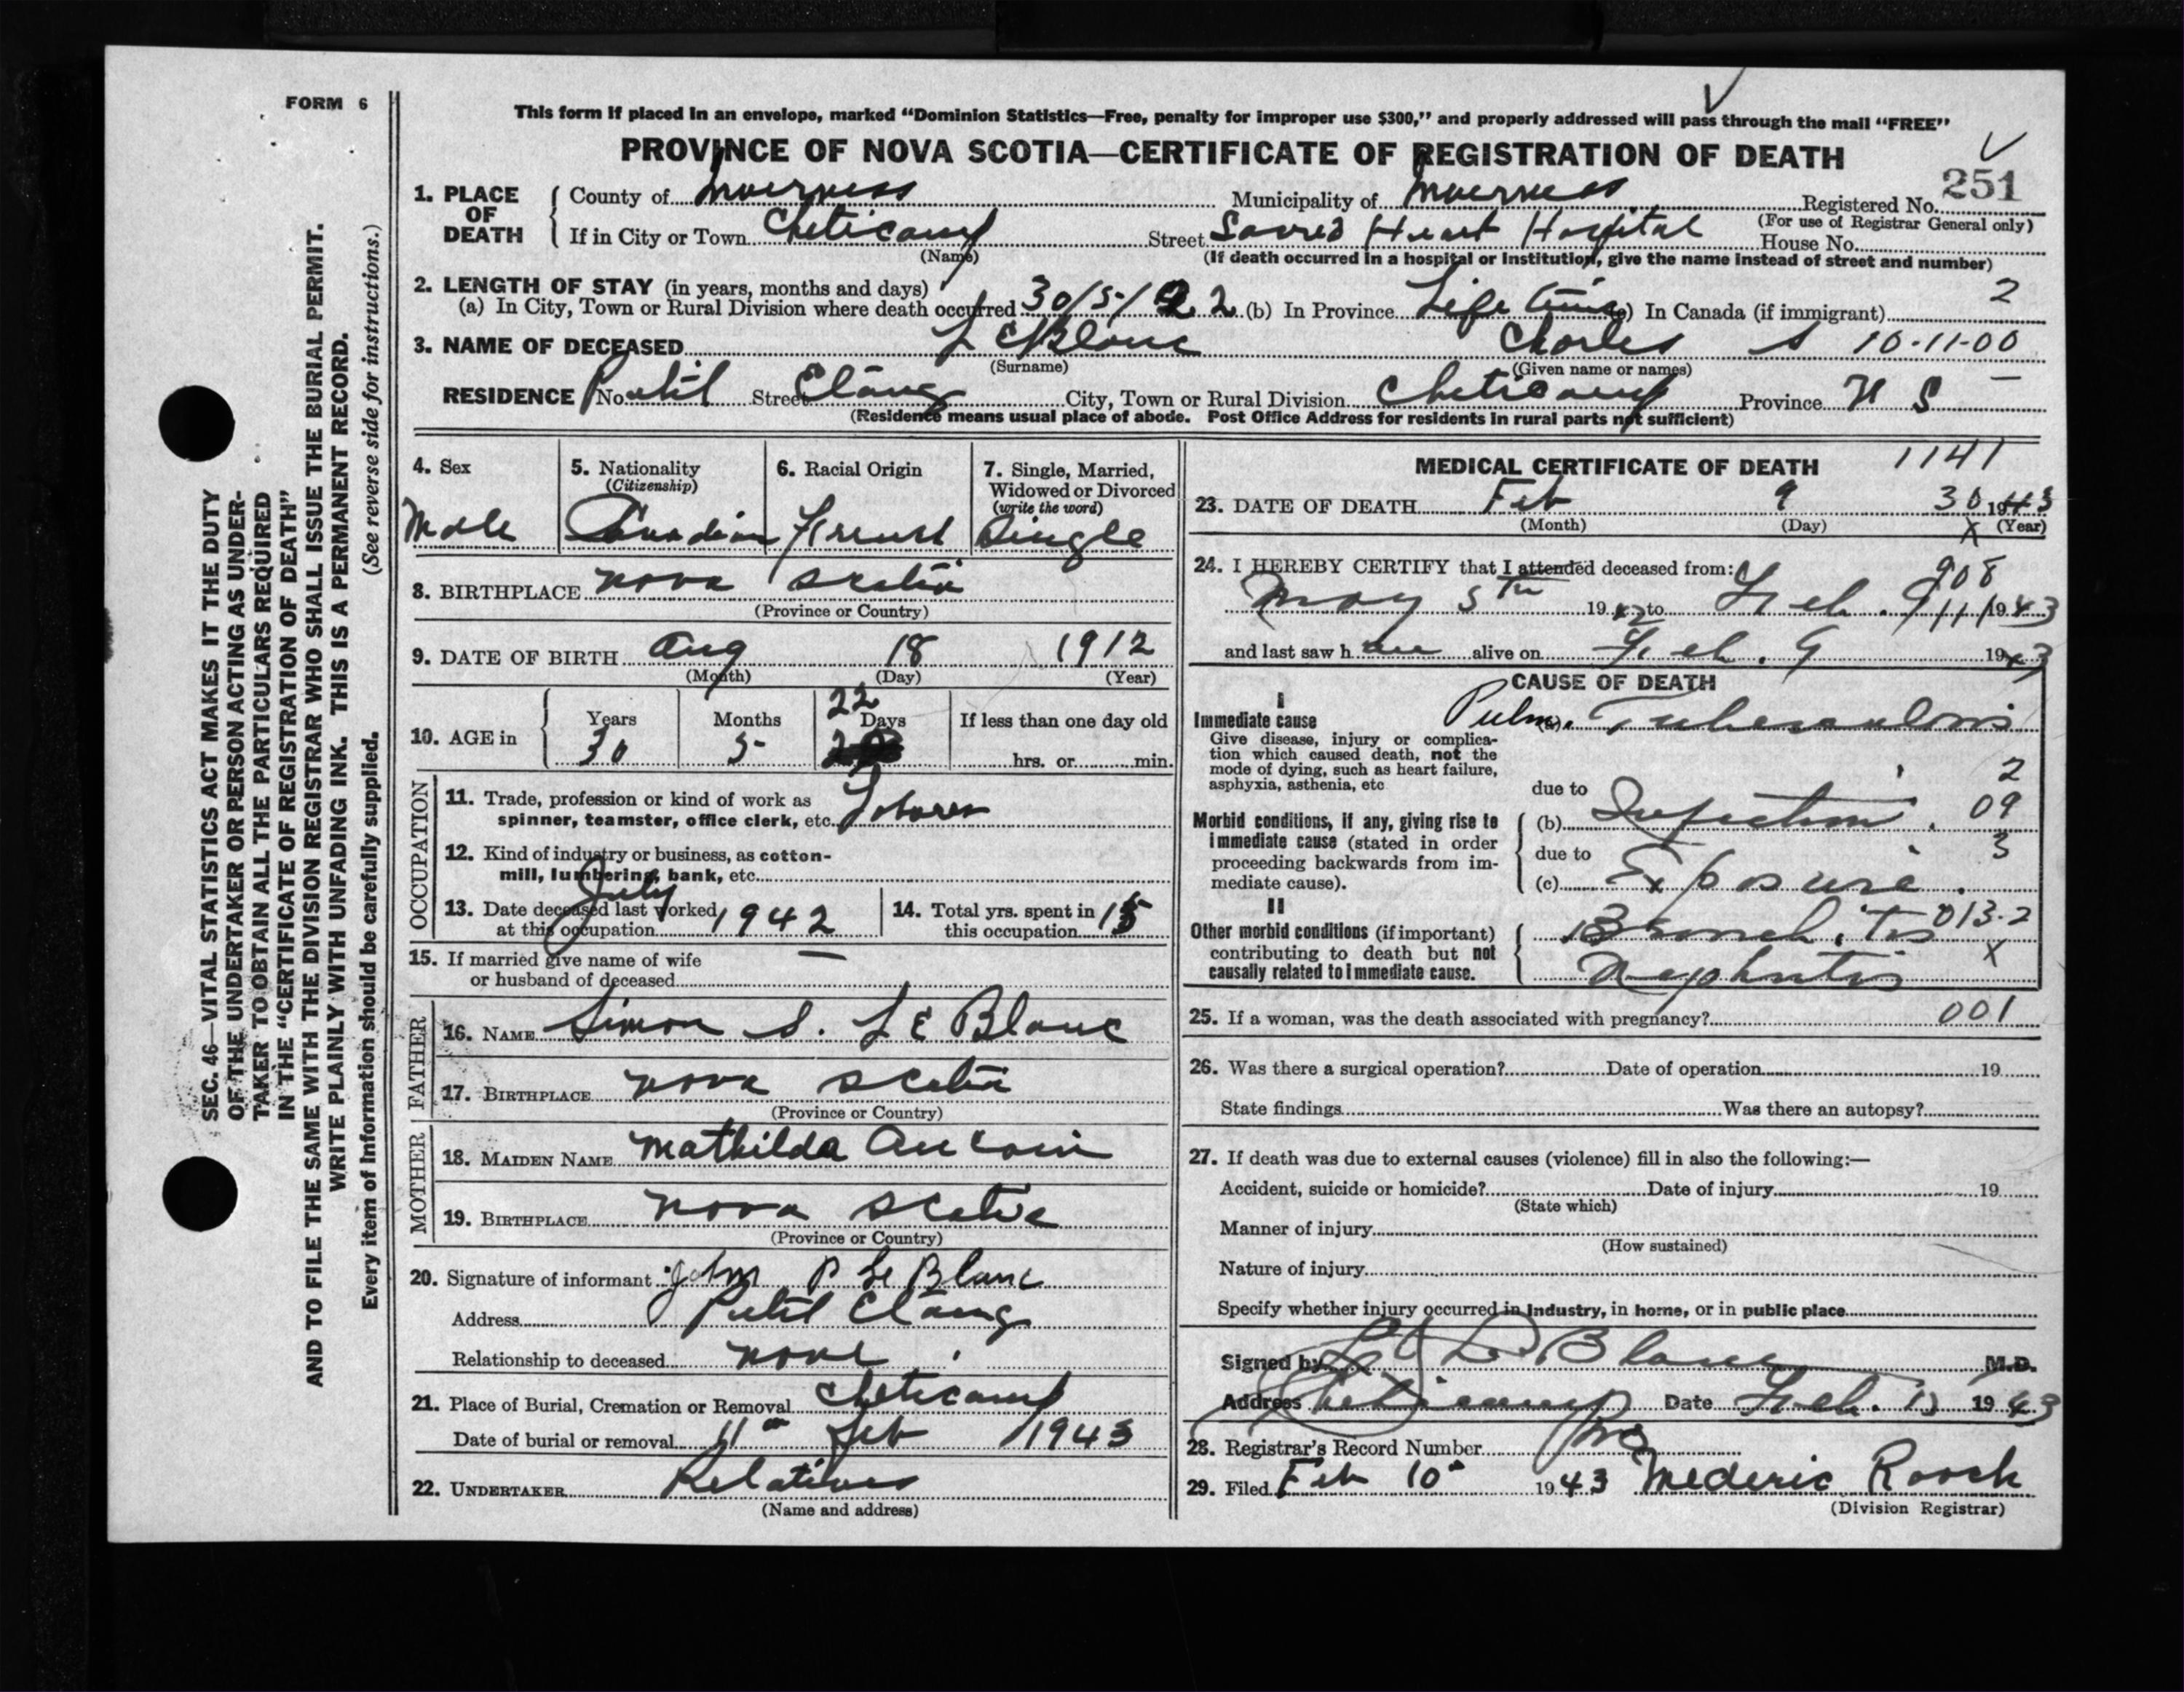 FORM 6
This form if placed in an envelope, marked “Dominion Statistics—Free, penalty for improper use $300,” and properly addressed will pass through the mail “FREE”
PROVINCE OF NOVA SCOTIA—CERTIFICATE OF REGISTRATION OF DEATH
251
1. PLACE OF DEATH County of Inverness Municipality of Inverness Registered No.
(For use of Registrar General only)
If in City or Town Cheticamp Street Sacred Heart Hospital House No.
(Name) (If death occurred in a hospital or institution, give the name instead of street and number)
2. LENGTH OF STAY (in years, months and days)
(a) In City, Town or Rural Division where death occurred 30/5/22 (b) In Province Life time (c) In Canada (if immigrant) 2
3. NAME OF DECEASED LeBlanc Charles S 10-11-00
(Surname) (Given name or names)
RESIDENCE No. Petit Street Etang City, Town or Rural Division Cheticamp Province N S
(Residence means usual place of abode. Post Office Address for residents in rural parts not sufficient)
4. Sex
Male
5. Nationality
(Citizenship)
Canadian
6. Racial Origin
French
7. Single, Married,
Widowed or Divorced
(write the word)
Single
8. BIRTHPLACE Nova Scotia
(Province or Country)
9. DATE OF BIRTH Aug 18 1912
(Month) (Day) (Year)
22
10. AGE in Years Months Days If less than one day old
30 5 hrs. or min.
OCCUPATION
11. Trade, profession or kind of work as
spinner, teamster, office clerk, etc. Laborer
12. Kind of industry or business, as cotton-
mill, lumbering, bank, etc.
13. Date deceased last worked
at this occupation July 1942
14. Total yrs. spent in
this occupation 15
15. If married give name of wife
or husband of deceased —
FATHER
16. NAME Simon S. LeBlanc
17. BIRTHPLACE Nova Scotia
(Province or Country)
MOTHER
18. MAIDEN NAME Mathilda Aucoin
19. BIRTHPLACE Nova Scotia
(Province or Country)
20. Signature of informant John P LeBlanc
Address Petit Etang
Relationship to deceased none
21. Place of Burial, Cremation or Removal Cheticamp
Date of burial or removal 11 Feb 1943
22. UNDERTAKER Relatives
(Name and address)
MEDICAL CERTIFICATE OF DEATH 1141
23. DATE OF DEATH Feb 9 30 1943
(Month) (Day) X (Year)
24. I HEREBY CERTIFY that I attended deceased from:
908
May 5th 1942 to Feb. 9 111 1943
and last saw h im alive on Feb. 9 1943
CAUSE OF DEATH
I
Immediate cause
Give disease, injury or complica-
tion which caused death, not the
mode of dying, such as heart failure,
asphyxia, asthenia, etc
(a) Pulm. Tuberculosis
2
due to
Morbid conditions, if any, giving rise to
immediate cause (stated in order
proceeding backwards from im-
mediate cause).
(b) Infection. 09
due to 3
(c) Exposure.
II
Other morbid conditions (if important)
contributing to death but not
causally related to immediate cause.
Bronchitis 013-2
X
Nephritis
25. If a woman, was the death associated with pregnancy? 001
26. Was there a surgical operation? Date of operation 19
State findings Was there an autopsy?
27. If death was due to external causes (violence) fill in also the following:—
Accident, suicide or homicide? Date of injury 19
(State which)
Manner of injury
(How sustained)
Nature of injury
Specify whether injury occurred in industry, in home, or in public place
Signed by LeBlanc M.D.
Address Cheticamp Date Feb. 1943
28. Registrar's Record Number
29. Filed Feb 10 1943 Mederic Roach
(Division Registrar)
SEC. 46—VITAL STATISTICS ACT MAKES IT THE DUTY
OF THE UNDERTAKER OR PERSON ACTING AS UNDER-
TAKER TO OBTAIN ALL THE PARTICULARS REQUIRED
IN THE “CERTIFICATE OF REGISTRATION OF DEATH”
AND TO FILE THE SAME WITH THE DIVISION REGISTRAR WHO SHALL ISSUE THE BURIAL PERMIT.
WRITE PLAINLY WITH UNFADING INK. THIS IS A PERMANENT RECORD.
Every item of information should be carefully supplied. (See reverse side for instructions.)